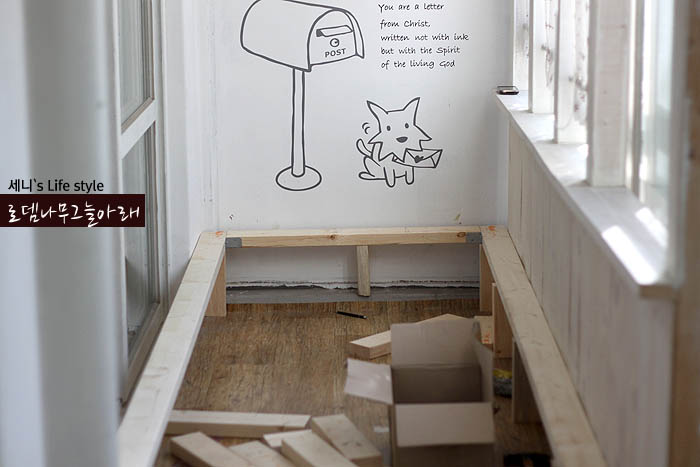 You are a letter
from Christ,
written not with ink
but with the Spirit
of the living God
POST
세니`s Life style
로뎀나무그늘아래